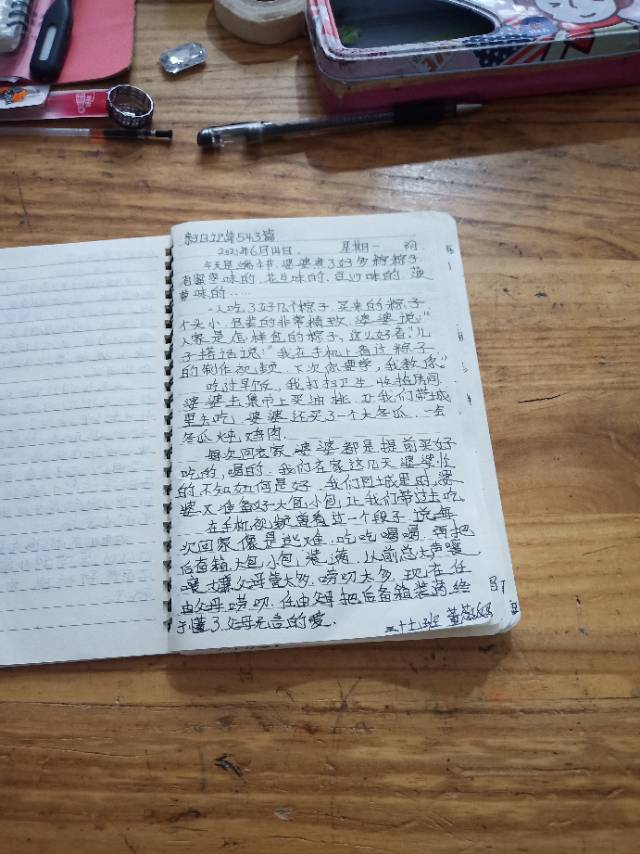 亲日记第543篇
2021年6月14日. 星期一
今天是端午节.婆婆煮了好多粽粽子
有蜜枣味的.花生味的.豆沙味的
味的...
一人吃了好几个粽子.买来的粽子
个头小.包装的非常精致.婆婆说:"
人家是怎样包的粽子,这么好看."儿
子搭话说:"我在手机上看过粽子
的制作视频.下次你要学,我教你."
吃过早饭.我打扫卫生.收拾房间.
婆婆去集市上买油桃.让我们带城
里去吃,婆婆还买了一个大冬瓜.一会
冬瓜炖烧肉.
每次回老家.婆婆都是提前买好
吃的,喝的.我们在家这几天.婆婆忙
的不知如何是好.我们回城里时,婆
婆又准备好大包小包,让我们带过去吃.
在手机视频里看过一个段子.说每
次回家像是进城.吃吃喝喝.再把
后备箱大包小包,装满.从前总大声嚷
嚷.嫌父母管太多.唠叨太多.现在任
由父母唠叨.任由父母把后备箱装满.终
于懂了父母无言的爱.